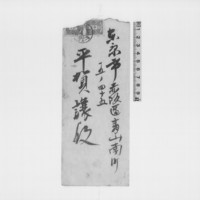 東京市赤坂區青山南町
五ノ四十五
平賀譲殿